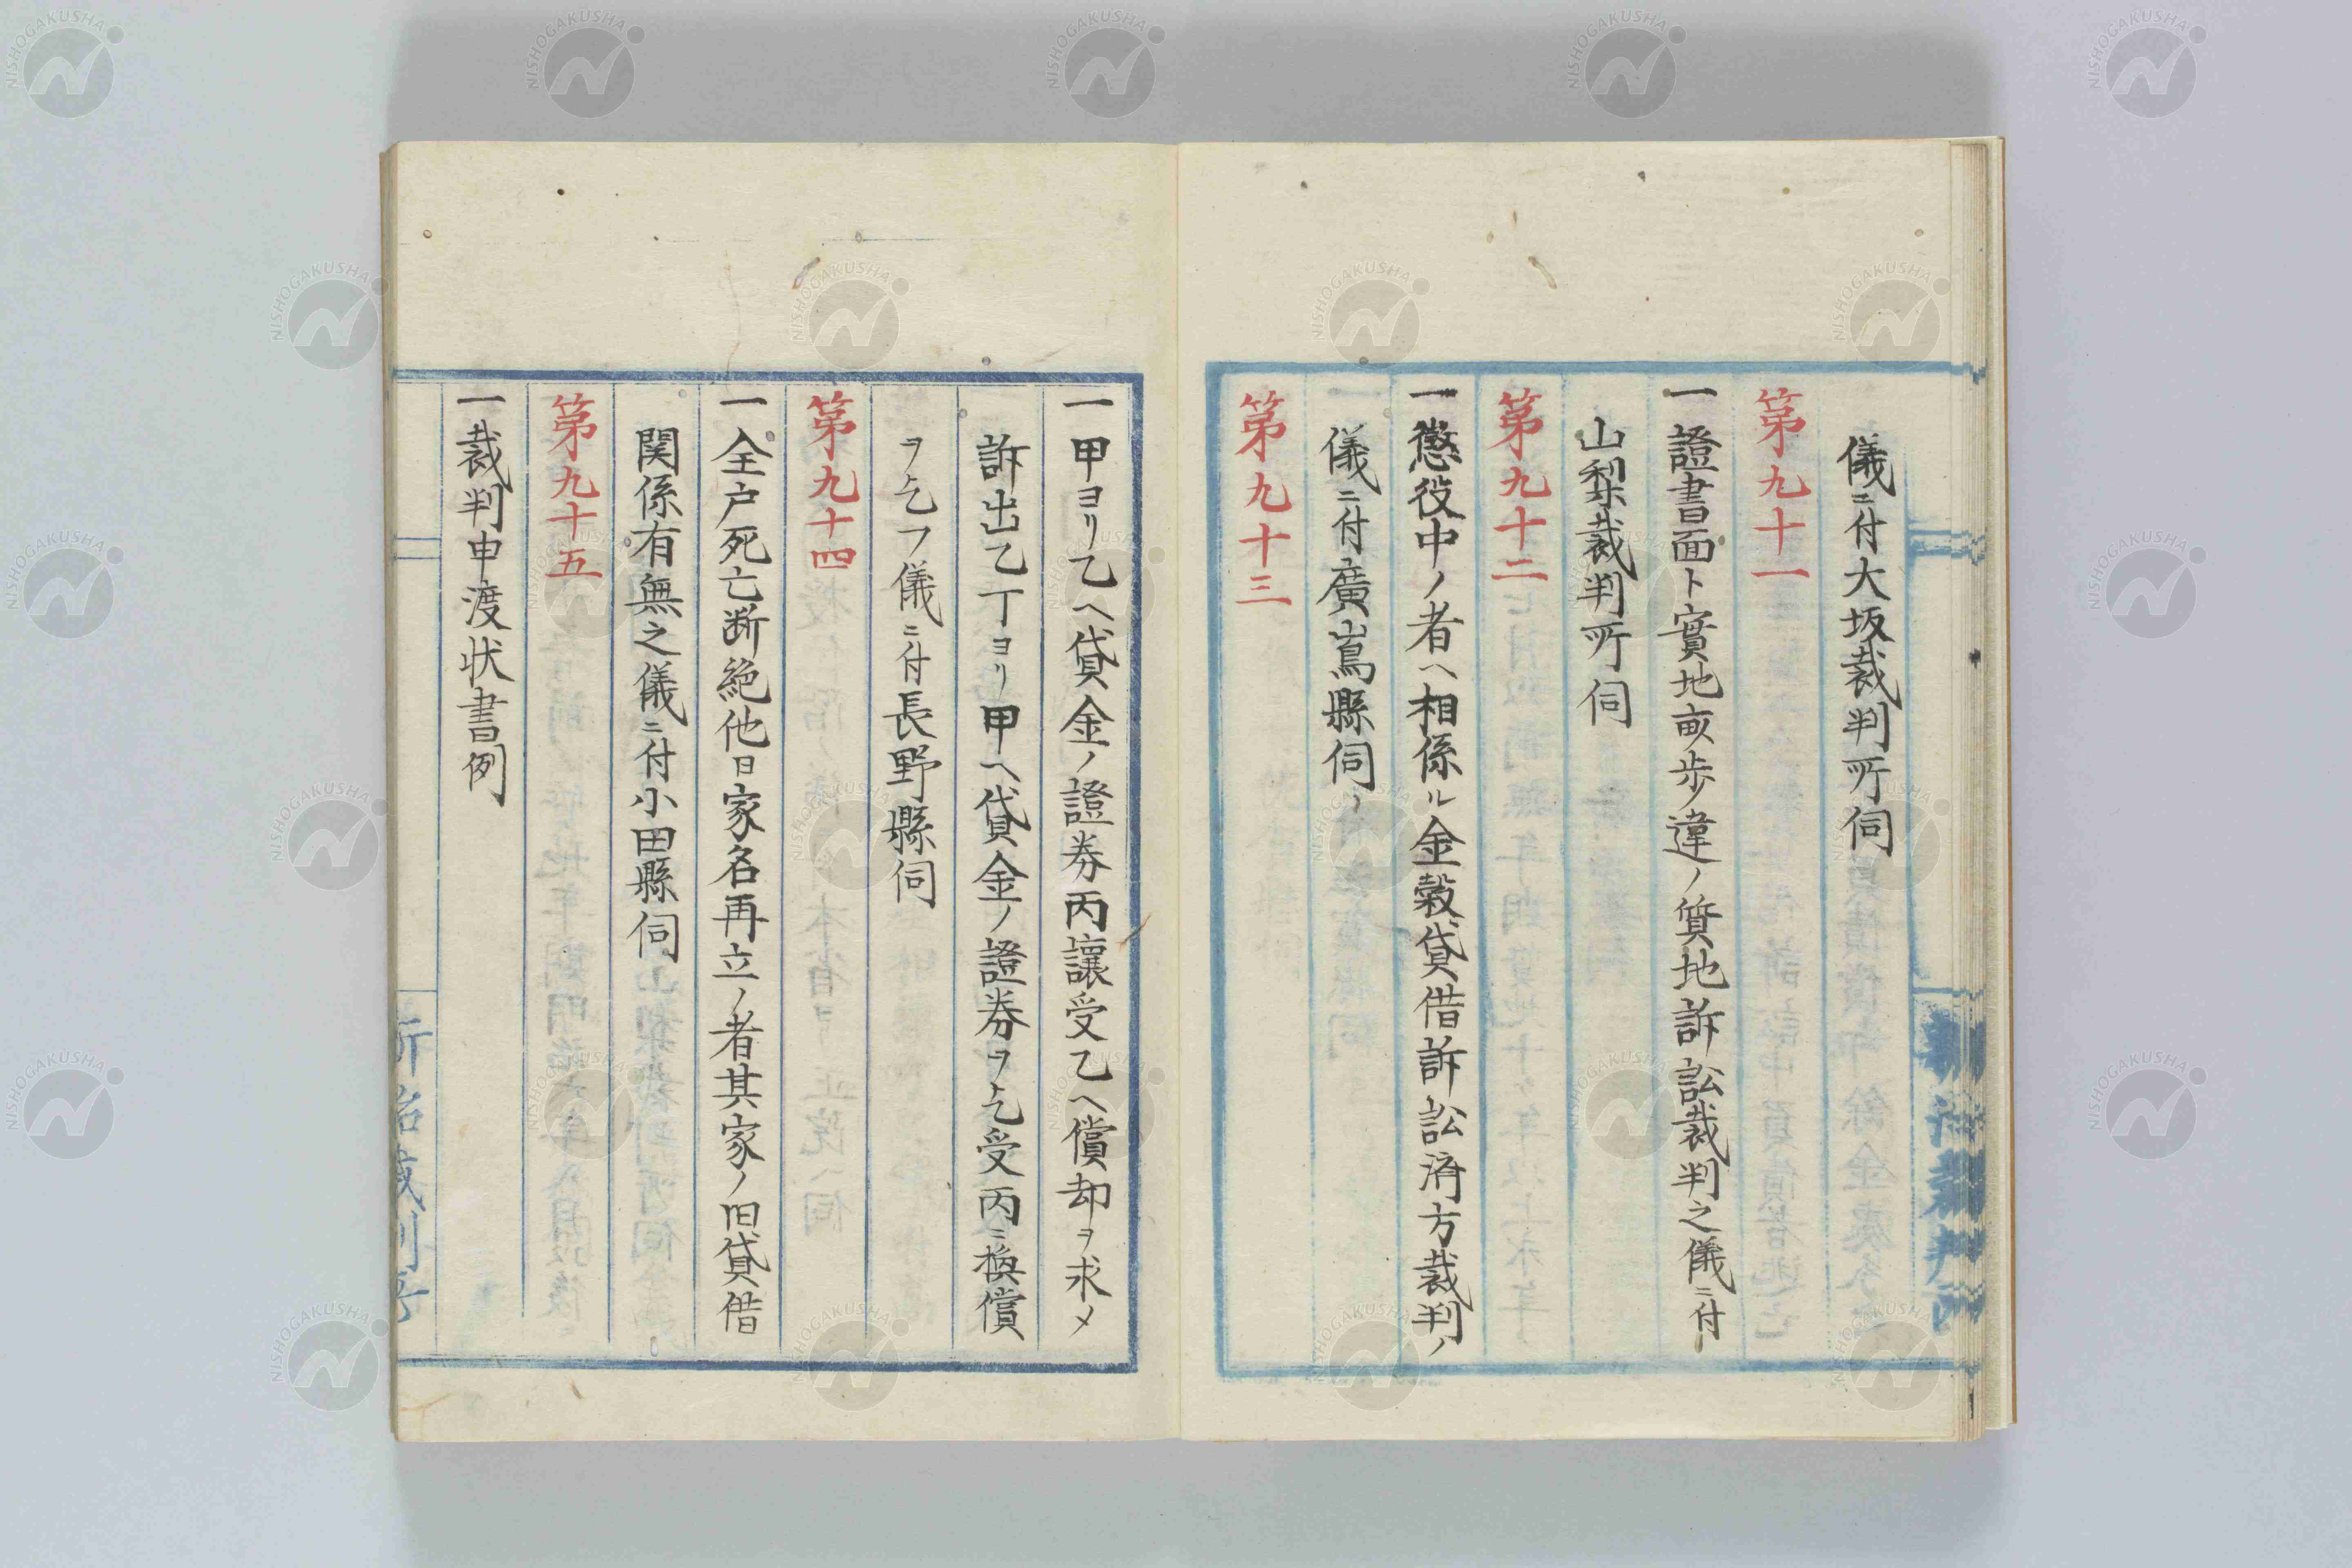 儀ニ付大坂裁判所伺
第九十一
一證書面ト實地畝歩違ノ質地訴訟裁判之儀ニ付
山梨裁判所伺
第九十二
一懲役中ノ者ヘ相係ル金穀貸借訴訟済方裁判ノ
儀ニ付廣嶌縣伺
第九十三
一甲ヨリ乙ヘ貸金ノ證券丙讓受乙ヘ償却ヲ求メ
訴出乙丁ヨリ甲ヘ貸金ノ證券ヲ乞受丙ニ換償
ヲ乞フ儀ニ付長野縣伺
第九十四
一全戸死亡断絶他日家名再立ノ者其家ノ旧貸借
関係有無之儀ニ付小田縣伺
第九十五
一裁判申渡状書例
NISHOGAKUSHA